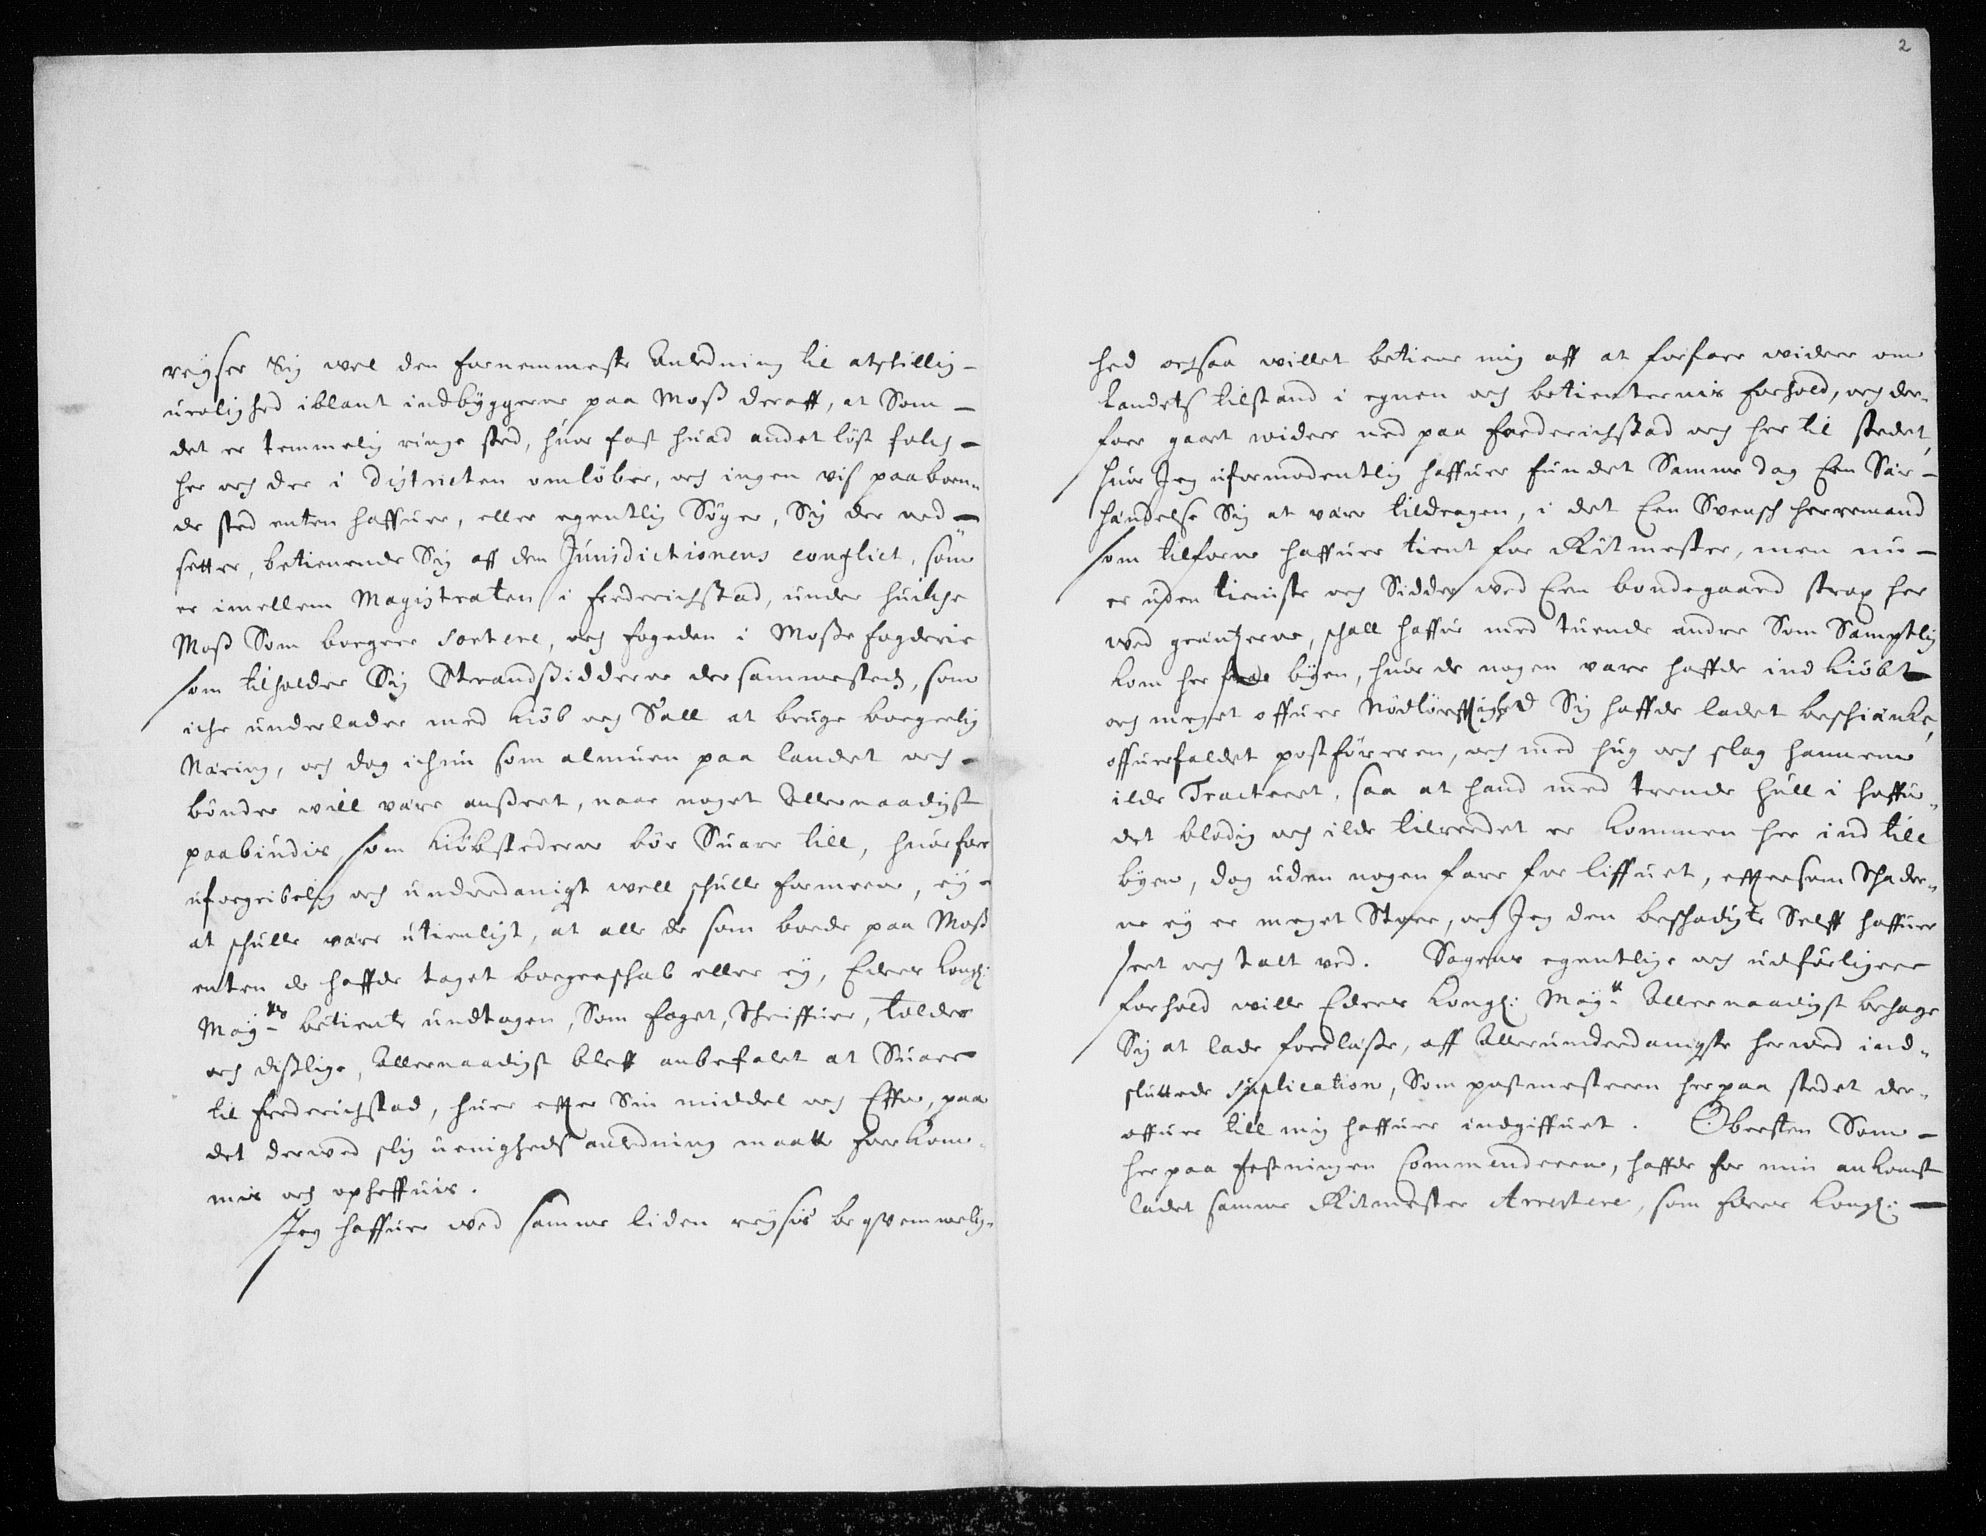 reyser Sig wel den fornemmeste Anledning til atskillig-
urolighed iblant indbyggerne paa Moss deraff, at Som-
det er temmelig ringe sted, huor fast huad andet löst folch-
her och der i Districten omlöber, och ingen vis paaboen-
de sted enten haffuer, eller egentlig Söger, Sig der ned-
setter, betienende Sig aff den Jurisdictionens conflict, som
er imellem Magistraten i Frederichstad, under huilche
Moss Som borgere Sortere, och fogeden i Mosse fogderie
som tilholder Sig Strandssidderne dersammesteds, som
iche underlader med kiöb och Sall at bruge borgerlig
Næring, och dog ichun som almuen paa landet och-
bönder will være ansseet, naar noget Allernaadigst
paabindis som kiöbstederne bör Suare till, huorfor
uforgribelig och underdanigst well schulle formeene, ey-
at schulle være utienligt, at alle de som boede paa Moss
enten de haffde taget borgerschab eller ey, Eders Kongl:
May:ts betiente undtagen, Som foget, Schriffuer, tolder
och disslige, Allernaadigst bleff anbefalet at Suare
til Frederichstad, huer effter Sin middel och Effne, paa
det derved slig uenigheds anledning maatte forekom-
mis och opheffuis.
Jeg haffuer ved samme liden reysis beqvemmelig-
2
hed ochsaa willet betiene mig aff at forfare widere om
Landets tilstand i egnen och betienternis forhold, och der-
foer gaaet widere ned paa Frederichstad och her til stedet,
huor Jeg uformodentlig haffuer fundet Samme dag Een Sær-
hændelse Sig at være tildragen, i det Een Svensch herremand
som tilforne haffuer tient for Ritmester, men nu-
er uden tieniste och Sidder ved Een bondegaard strax her
ved grentzerne, schall haffue med tuende andre Som Samptlig
kom her fra byen, huor de nogen vare haffde ind kiöbt
och meget offuer Nödtörfftighed Sig haffde ladet beschiencke,
offuerfaldet postföreren, och med hug och slag hannem
ilde Tracteret, saa at hand med trende hull i hoffue-
det blodig och ilde tilreedet er kommen her ind till
byen, dog uden nogen fare for liffuet, efftersom Schader-
ne ey er meget Store, och Jeg den beschadigte Selff haffuer
seet och talt ved. Sagens egentlige och udförligere
forhold wille Eders Kongl: May:tt Allernaadigst behage
Sig at lade forelæsse, aff Allerunderdanigste herved ind-
sluttede Suplication, Som postmesteren her paa stedet der-
offuer till mig haffuer indgiffuet. Obersten Som-
her paa festningen Commenderer, haffde for min ankomst
ladet samme Ritmester Arrestere, som Eders Kongl: